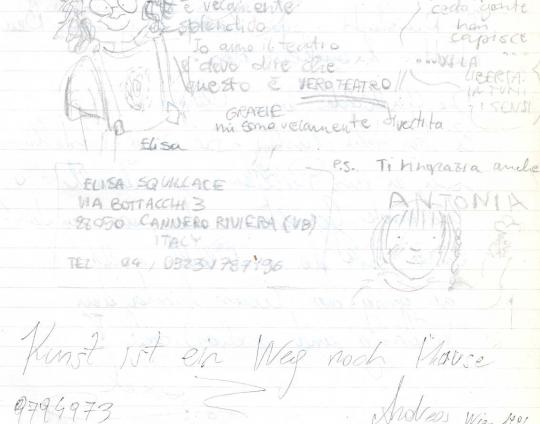 è veramente
splendido
Io amo il teatro
e devo dire che
questo è VERO TEATRO
GRAZIE
mi sono veramente divertita
Elisa
gente
non
capisce
LIBERTÀ
IN TUTTI
I SENSI
P.S. Ti ringrazia anche
ANTONIA
ELISA SQUILLACE
VIA BOTTACCHI 3
CANNERO RIVIERA (VB)
ITALY
TEL
Kunst ist ein Weg nach Hause
9794973
Andreas